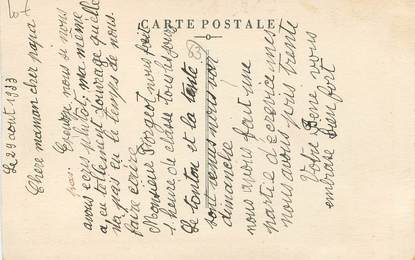 CARTE POSTALE
Le 29 aout 1933
Chere maman cher papa
Excusez nous si nous
avons pas
ecrs plutot, ma mémé
a eu tellement d'ouvrage quelle
na pas eu le temps de nous
faire ecrire
Monsieur nous fait
1 heure de classe tous les jours
Le tonton et la tante
sont venus nous voir
dimanche
nous avons fait une
partie d'ecrevices
nous avons pris trente
Votre René vous
embrase bien fort